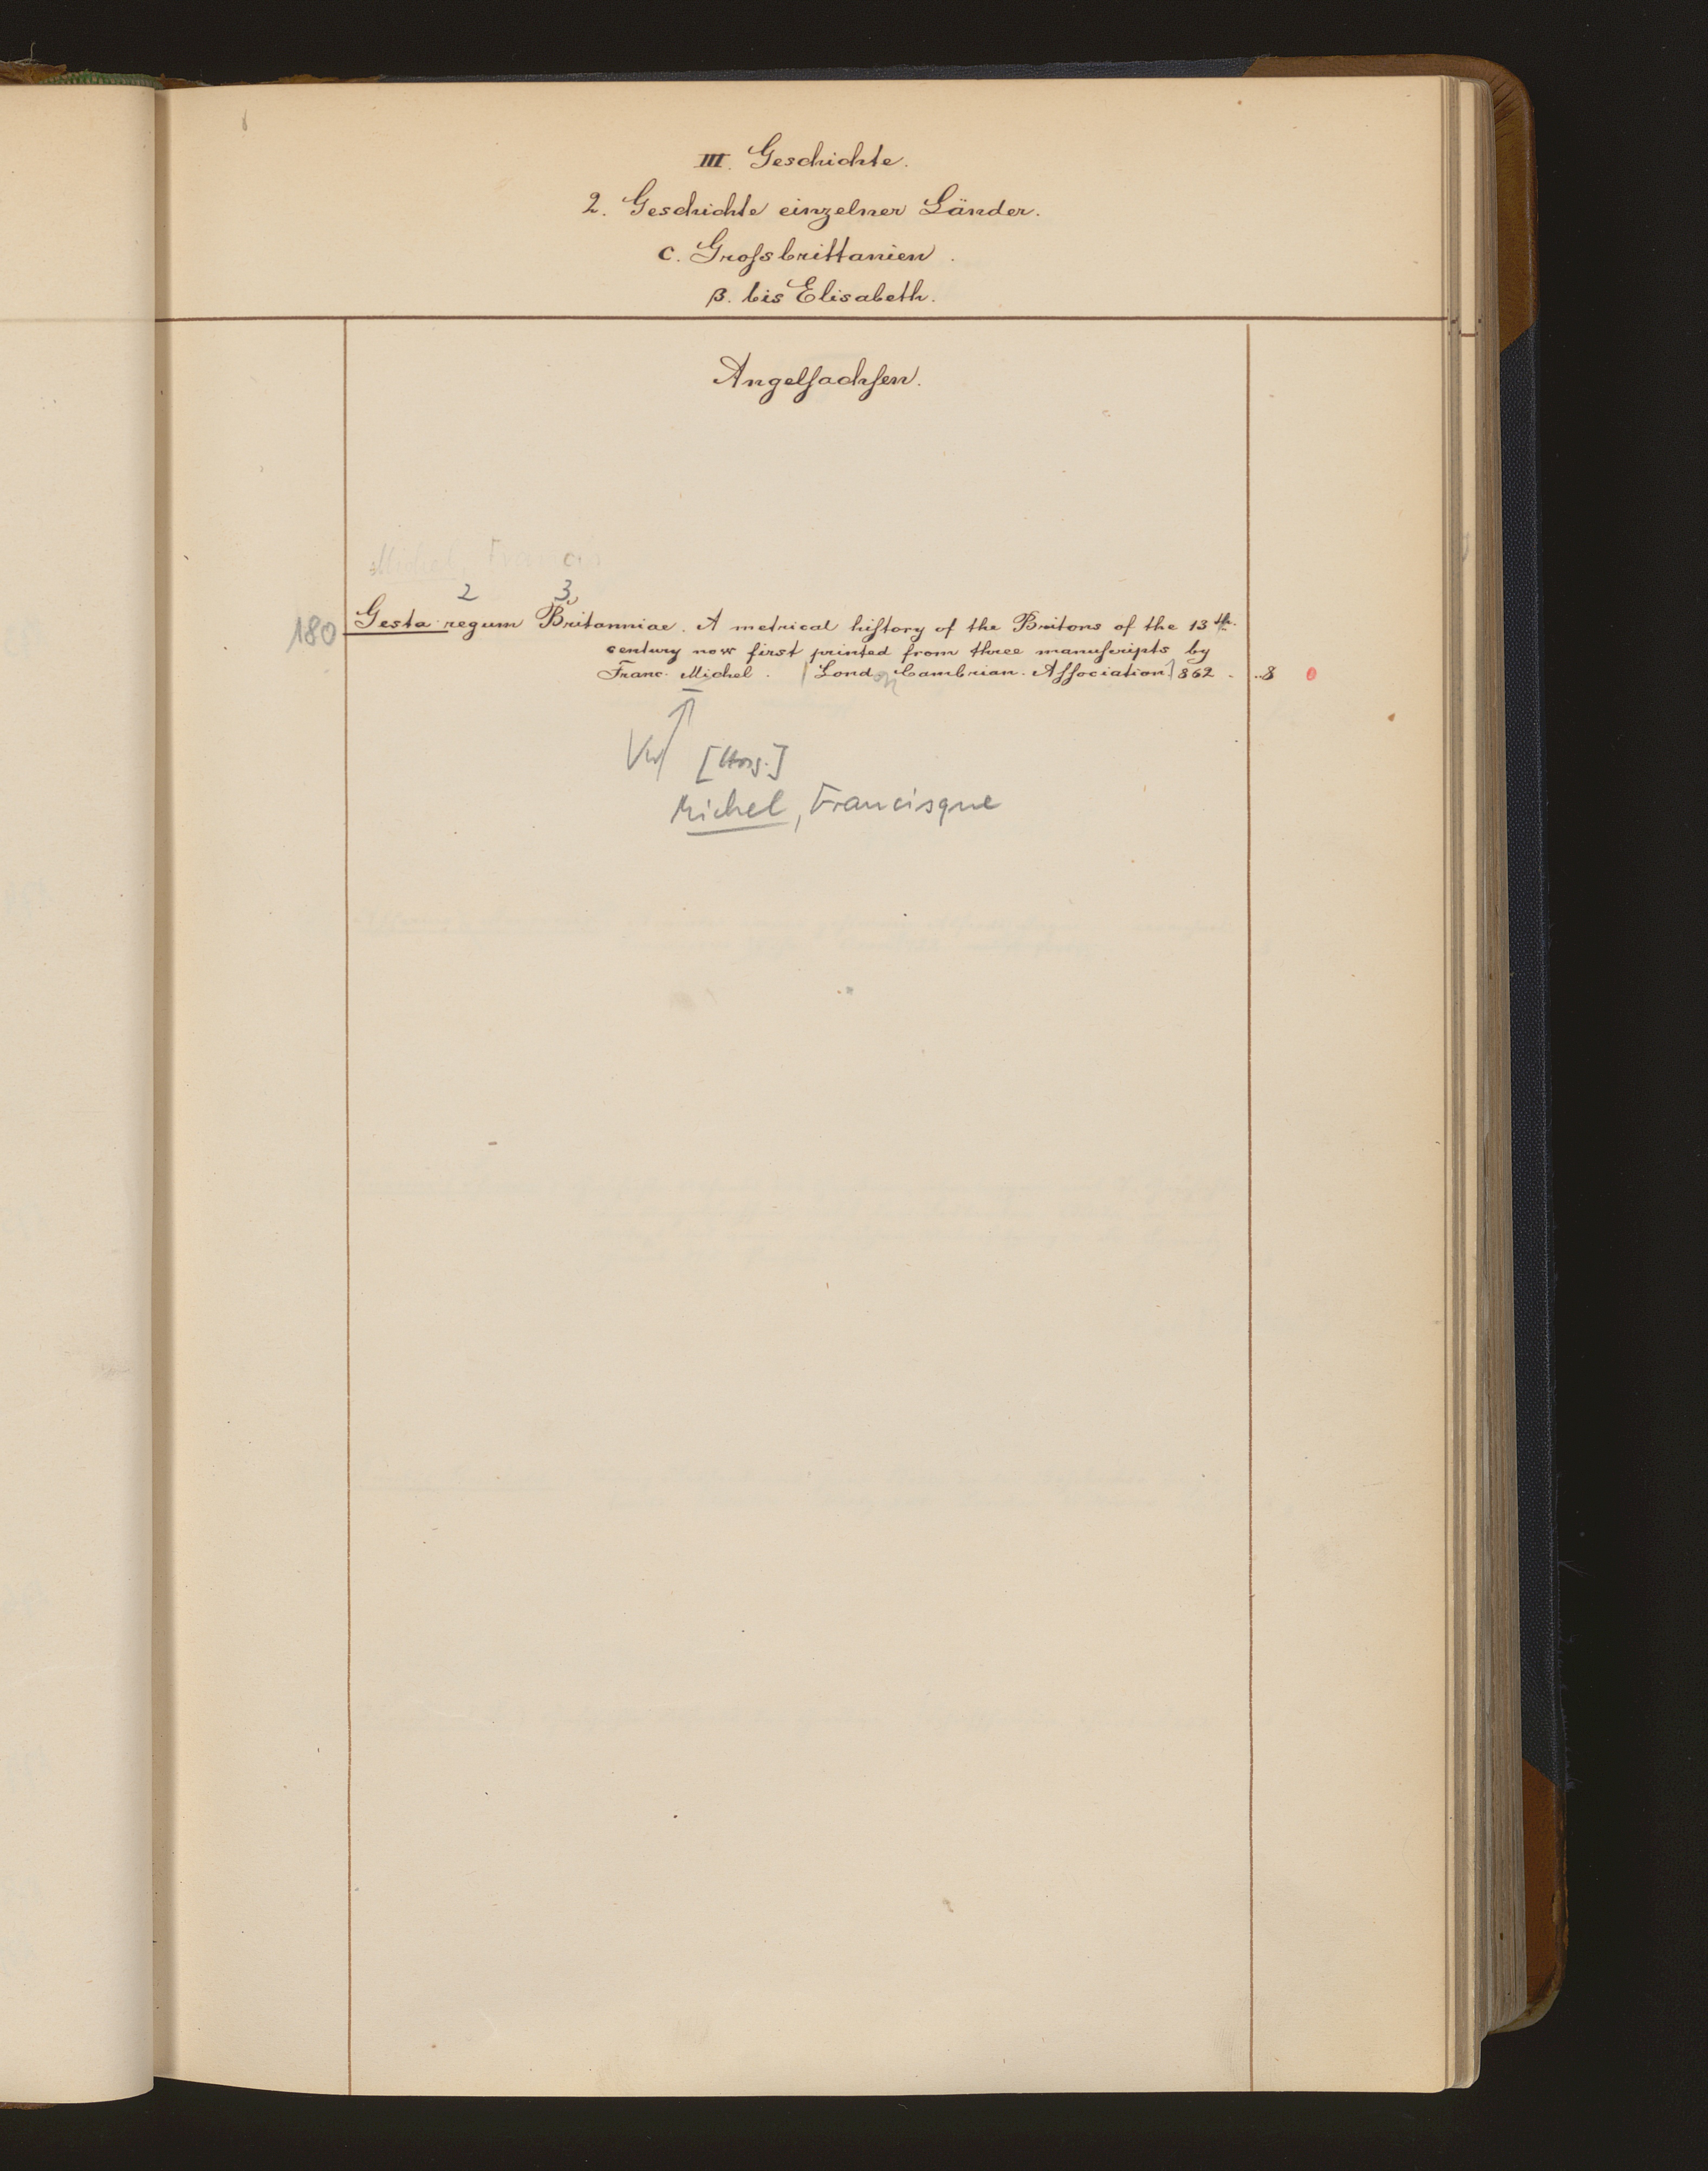 III. Geschichte.
2. Geschichte einzelner Länder.
c. Grofsbrittanien.
β. bis Elisabeth.
Angelsachsen.
Michel, Francis
2 3
180 Gesta regum Britanniae. A metrical history of the Britons of the 13th.
century now first printed from three manuscripts by
Franc. Michel. Lond. Cambrian. Association 862. 8
Vw [Hrsg.]
Michel, Francisque